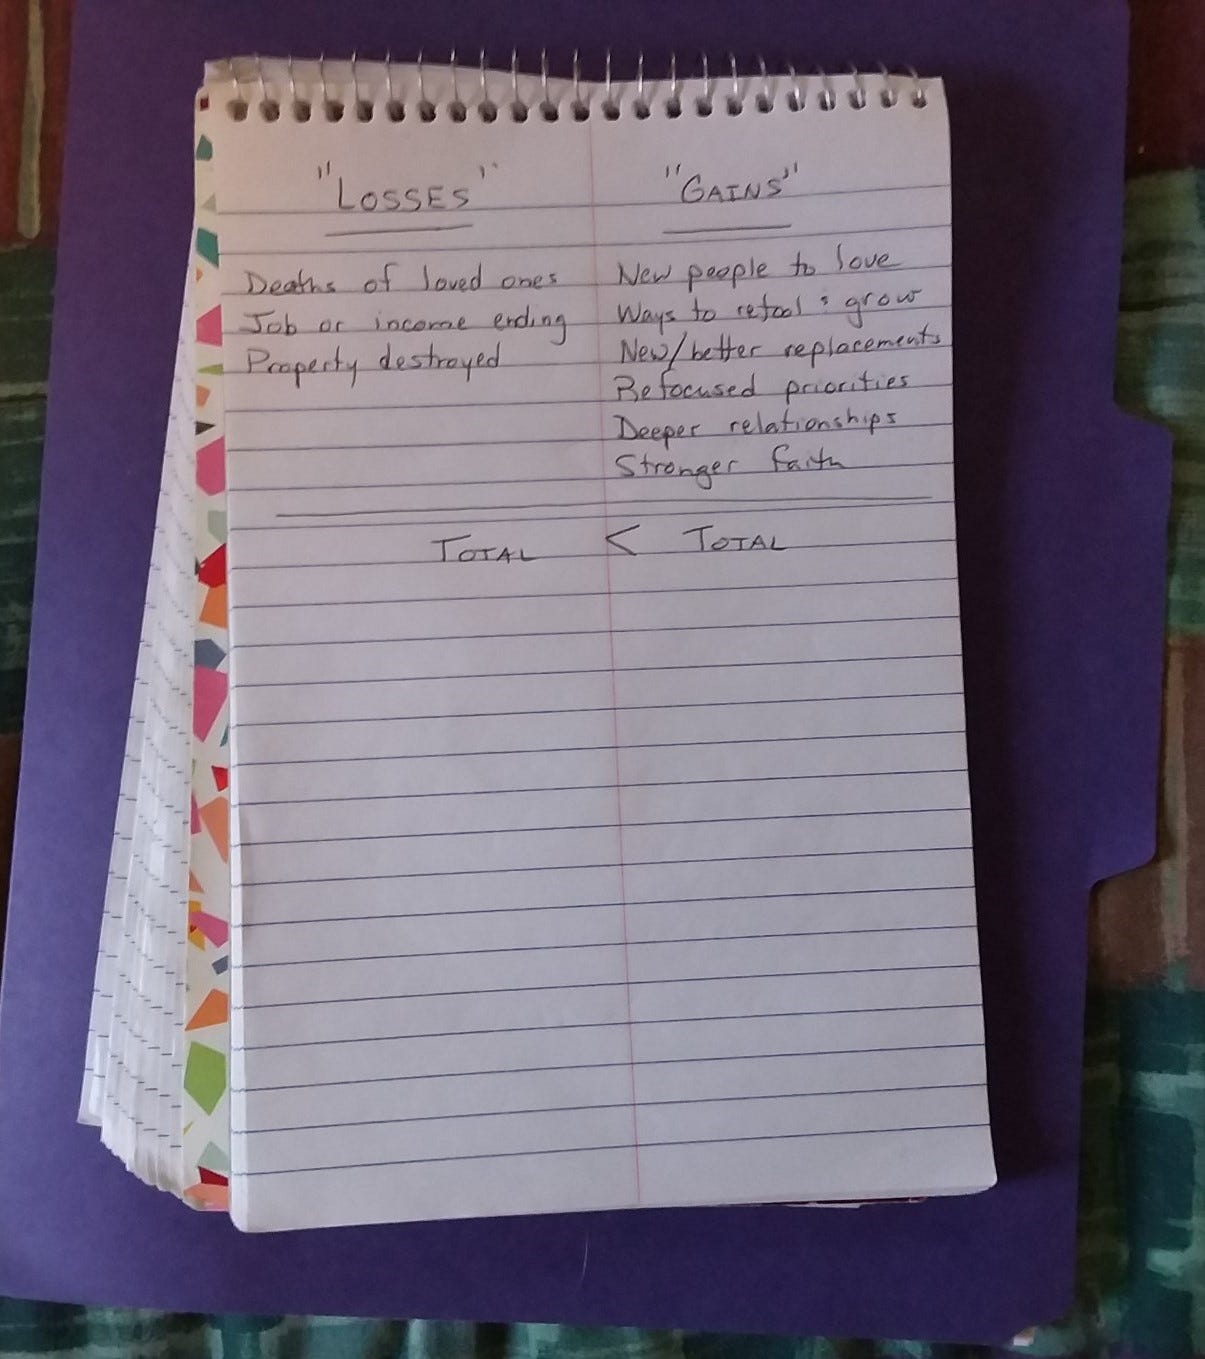 "LOSSES"
"GAINS"
Deaths of loved ones
Job or income ending
Property destroyed
New people to love
Ways to retool & grow
New/better replacements
Refocused priorities
Deeper relationships
Stronger faith
TOTAL < TOTAL